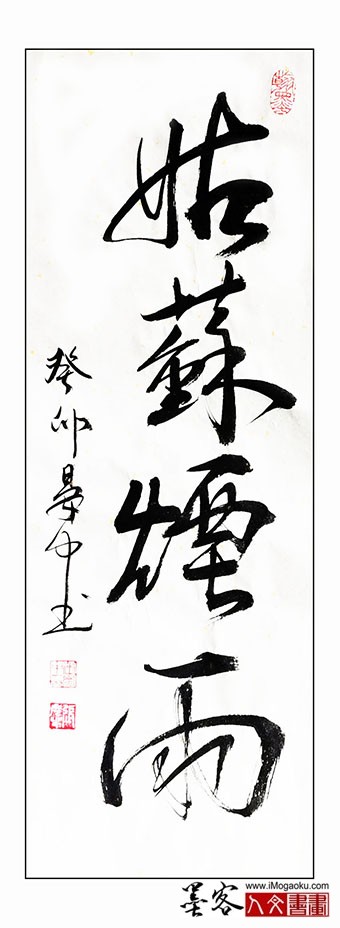 姑蘇煙雨
癸卯
書
墨客
www.iMogaoku.com
人文書畫